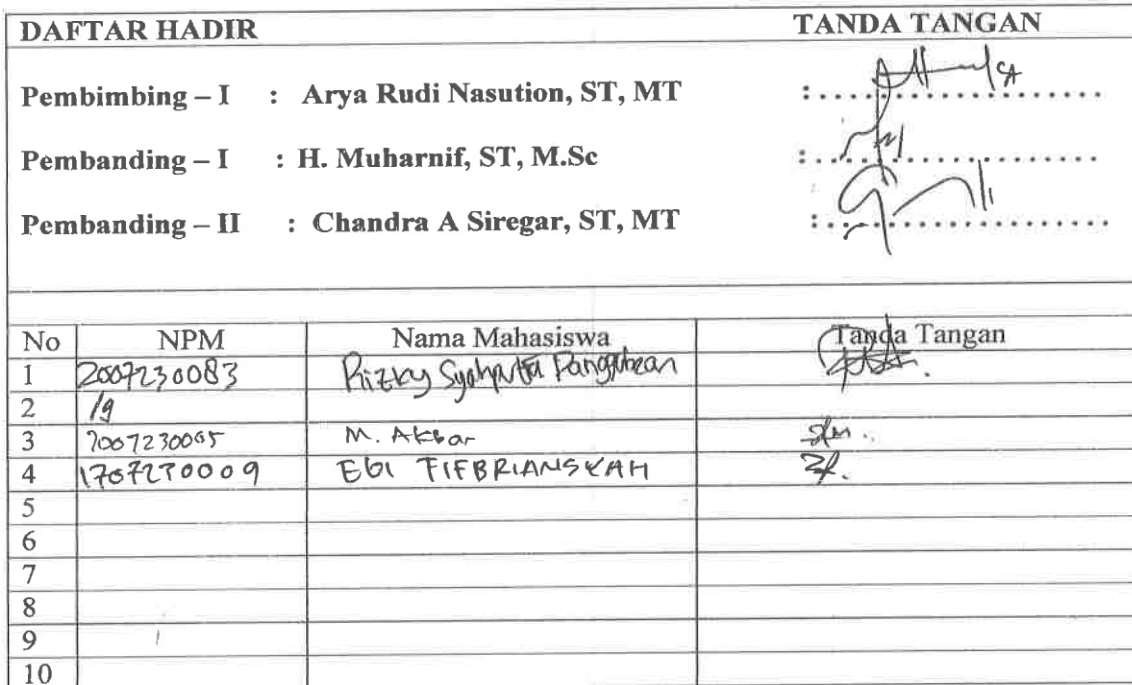 DAFTAR HADIR TANDA TANGAN
Pembimbing – I : Arya Rudi Nasution, ST, MT : ....................
Pembanding – I : H. Muharnif, ST, M.Sc : ....................
Pembanding – II : Chandra A Siregar, ST, MT : ....................
No NPM Nama Mahasiswa Tanda Tangan
1 2007230083 Rizky Syahputra
2
3 M. Akbar
4 1707230009 EGI
5
6
7
8
9
10